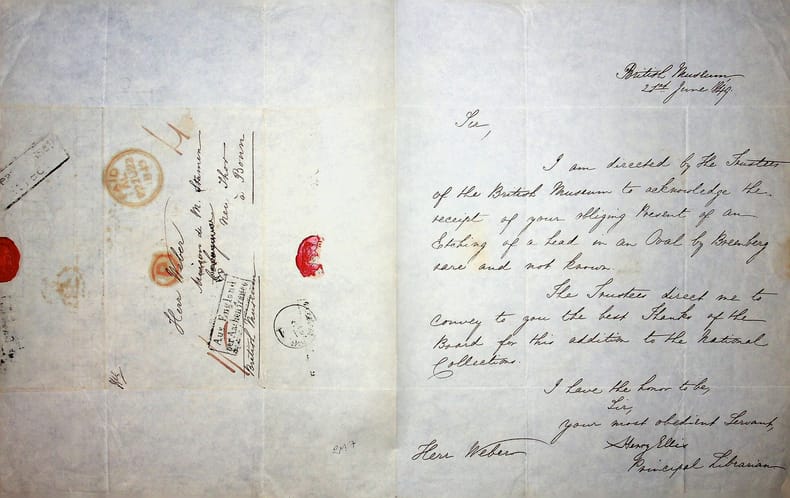 British Museum
21st June 1849.
Sir,
I am directed by the Trustees
of the British Museum to acknowledge the
receipt of your obliging Present of an
Etching of a head in an Oval by Bremberg
rare and not known.
The Trustees direct me to
convey to you the best Thanks of the
Board for this addition to the National
Collections.
I have the honor to be,
Sir,
your most obedient Servant,
Henry Ellis
Principal Librarian
Herr Weber
Herr Weber
Maison de M. Stamen
Neu Thor
a Bonn
British Museum
Aus England
per Aachen franco
PAID